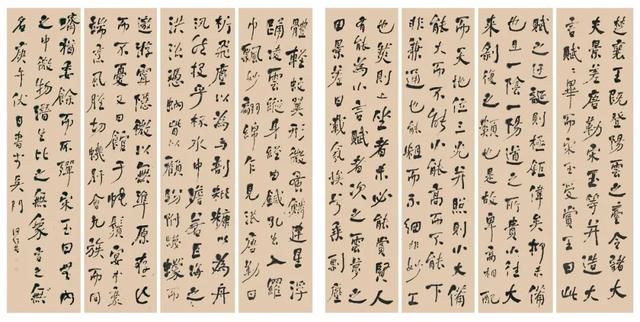 楚襄王既登陽雲之臺令諸大
夫景差唐勒宋玉等并造大
言賦畢而宋玉受賞王曰此
賦之迂誕則極鉅偉矣抑未
也且一陰一陽道之所貴小往大
來剝復之類也是故卑高相配
而天地位三光并照則小大備
能大而不能小能高而不能下
非兼通也能粗而不能細非妙工
也然則上坐者未必能賢人
有能為小言賦者之雲夢
田景差曰載氛埃兮乘剽塵
體輕蚊翼形微蚤鱗聿遑浮
踊凌雲縱身經由鍼孔出入羅
巾飄妙翩綿乍見泯唐勒曰
析飛塵以為輿剖粃糠以為舟
泛然投乎杯水中澹若巨海之
洪流憑蚋眥以顧盼附蠛蠓而
遨遊寧隱微以無準原存亡
而不憂又曰館于蠅鬚宴于毫
端烹虱脛切蟣肝會九族而同
嚌猶委餘而不殫宋玉曰無內
之中微物潛生比之無象言之無
名庚午日書於吳門